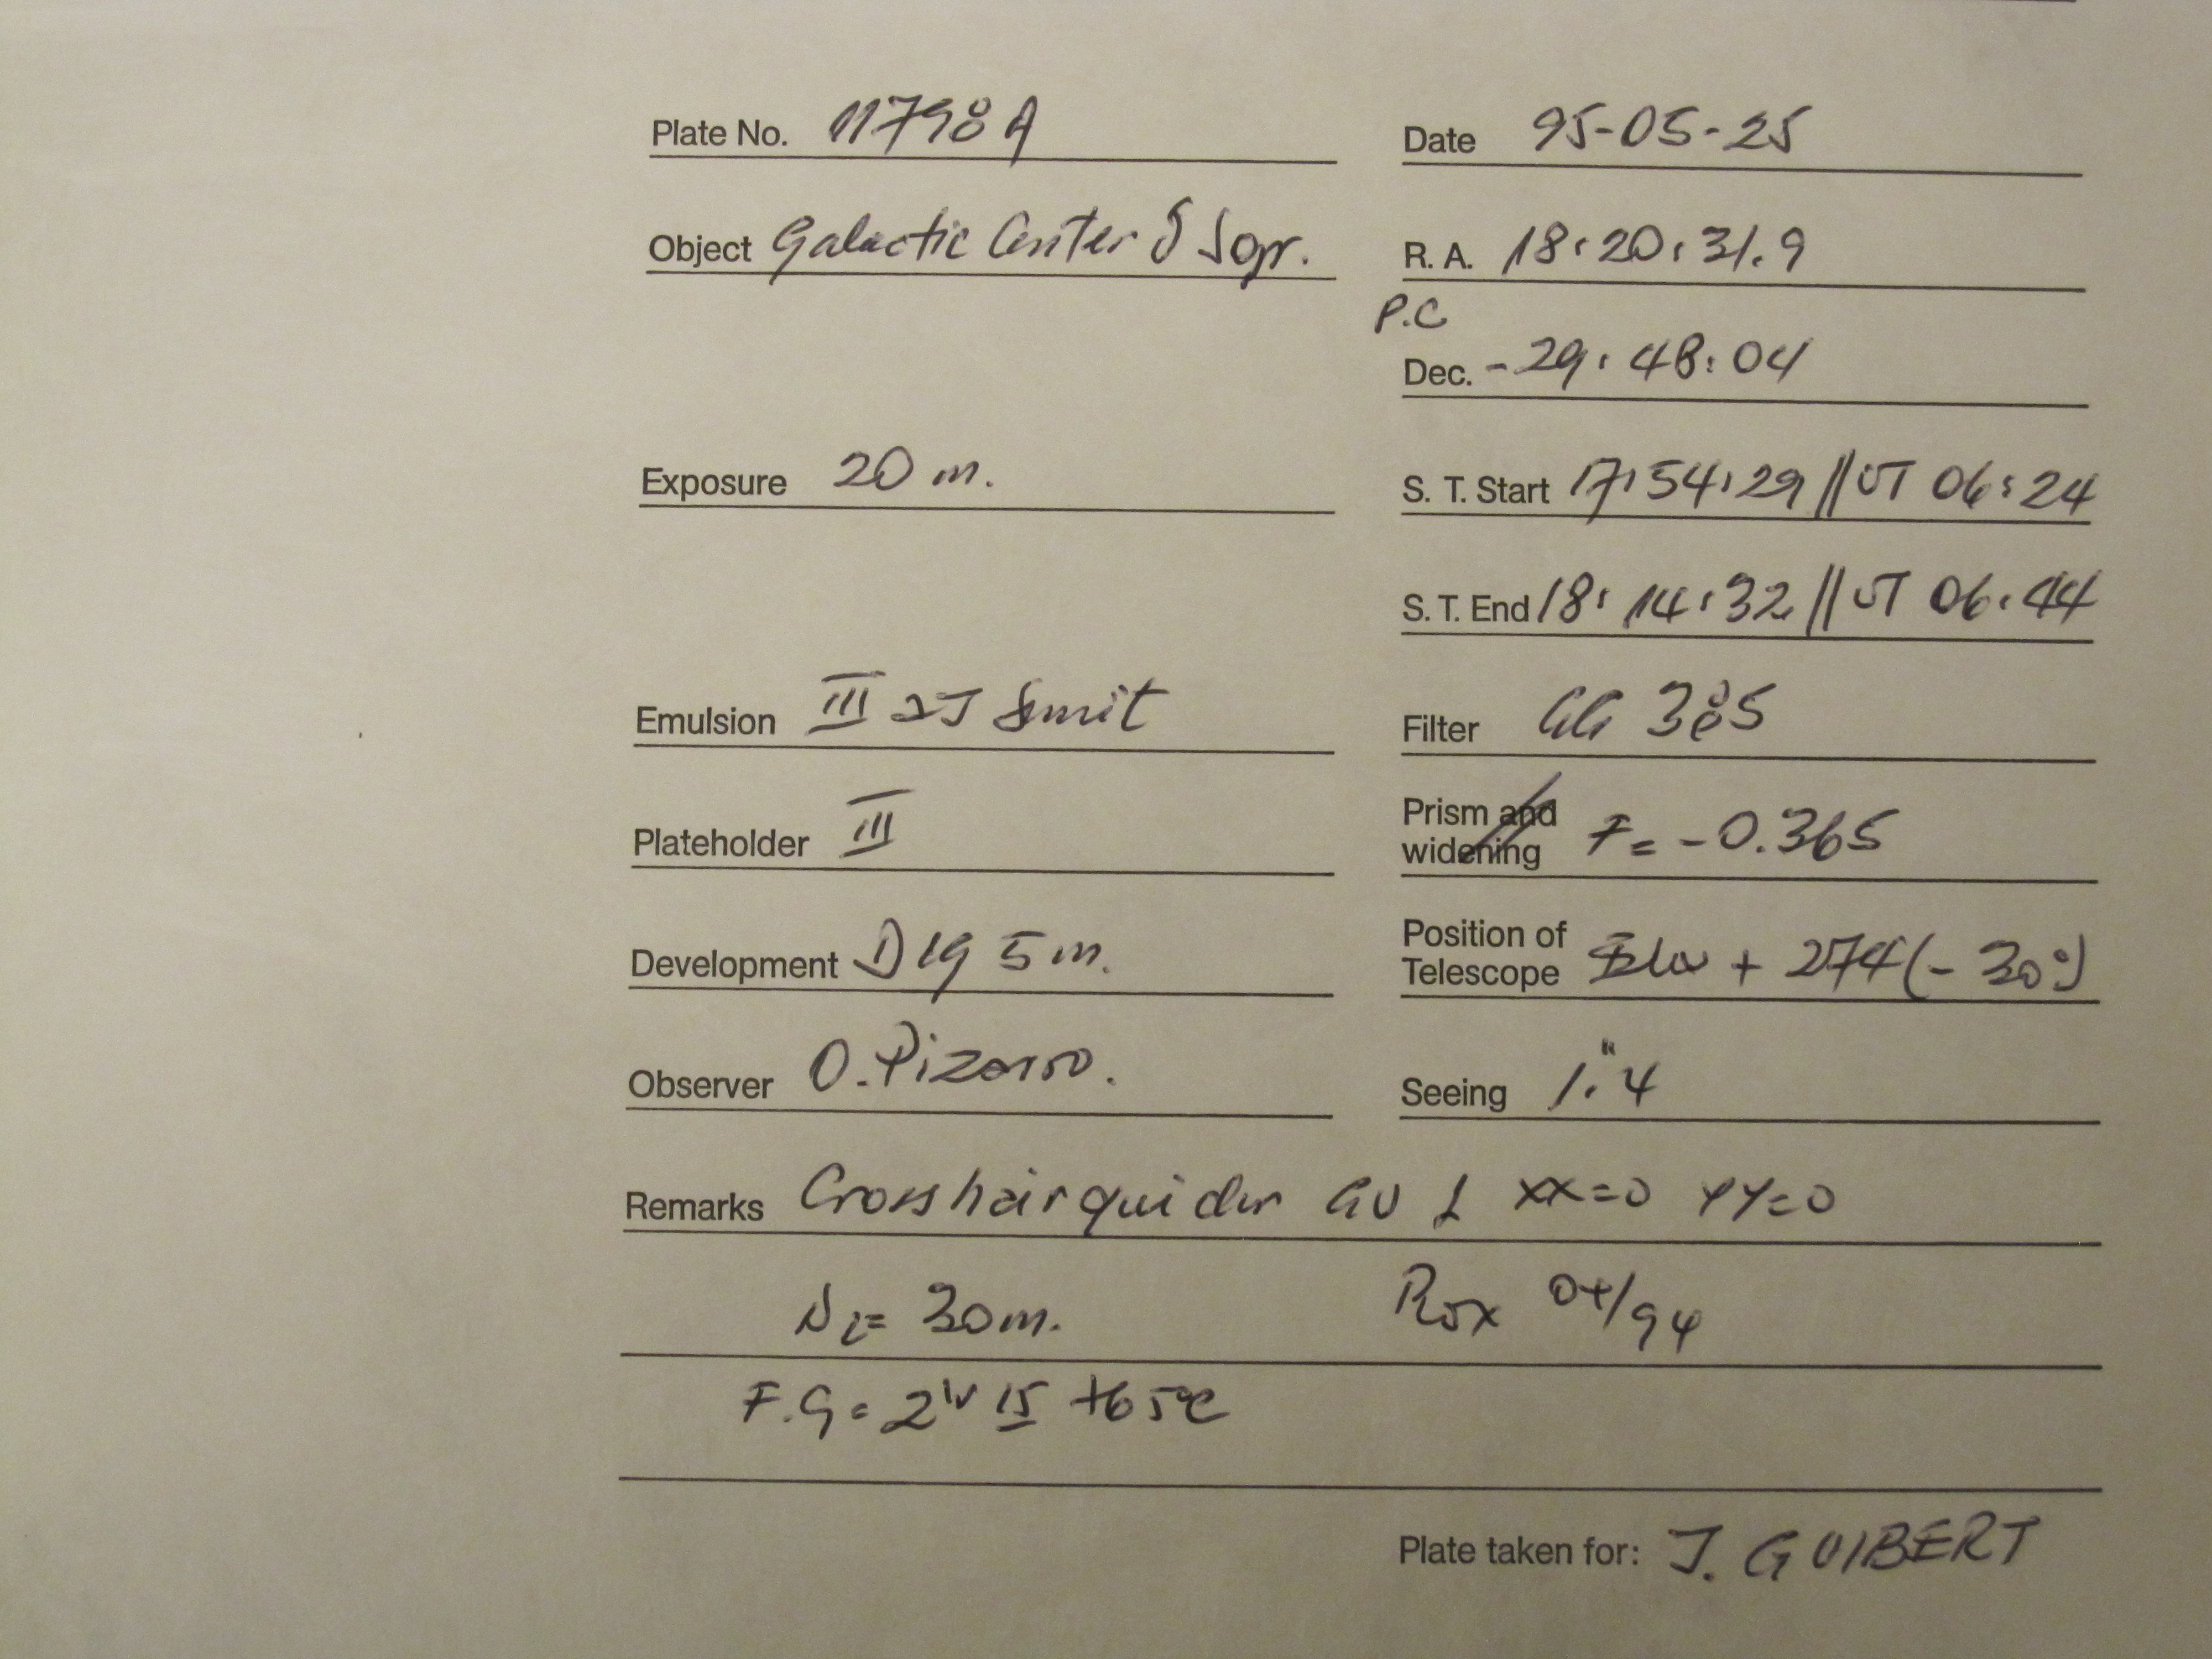 Plate No. 11798 A
Date 95-05-25
Object Galactic Center δ Sgr.
R. A. 18:20:31.9
P.C
Dec. -29:48:04
Exposure 20 m.
S. T. Start 17:54:29 || UT 06:24
S. T. End 18:14:32 || UT 06:44
Emulsion III aJ
Filter GG 385
Prism and
widening F = -0.365
Plateholder III
Position of
Telescope + 274 (-30°)
Development D19 5 m.
Observer O. Pizarro.
Seeing 1."4
Remarks Crosshair guider GU xx=0 YY=0
N2= 30m. 04/94
F.G= 15 +65°C
Plate taken for: J. GUIBERT